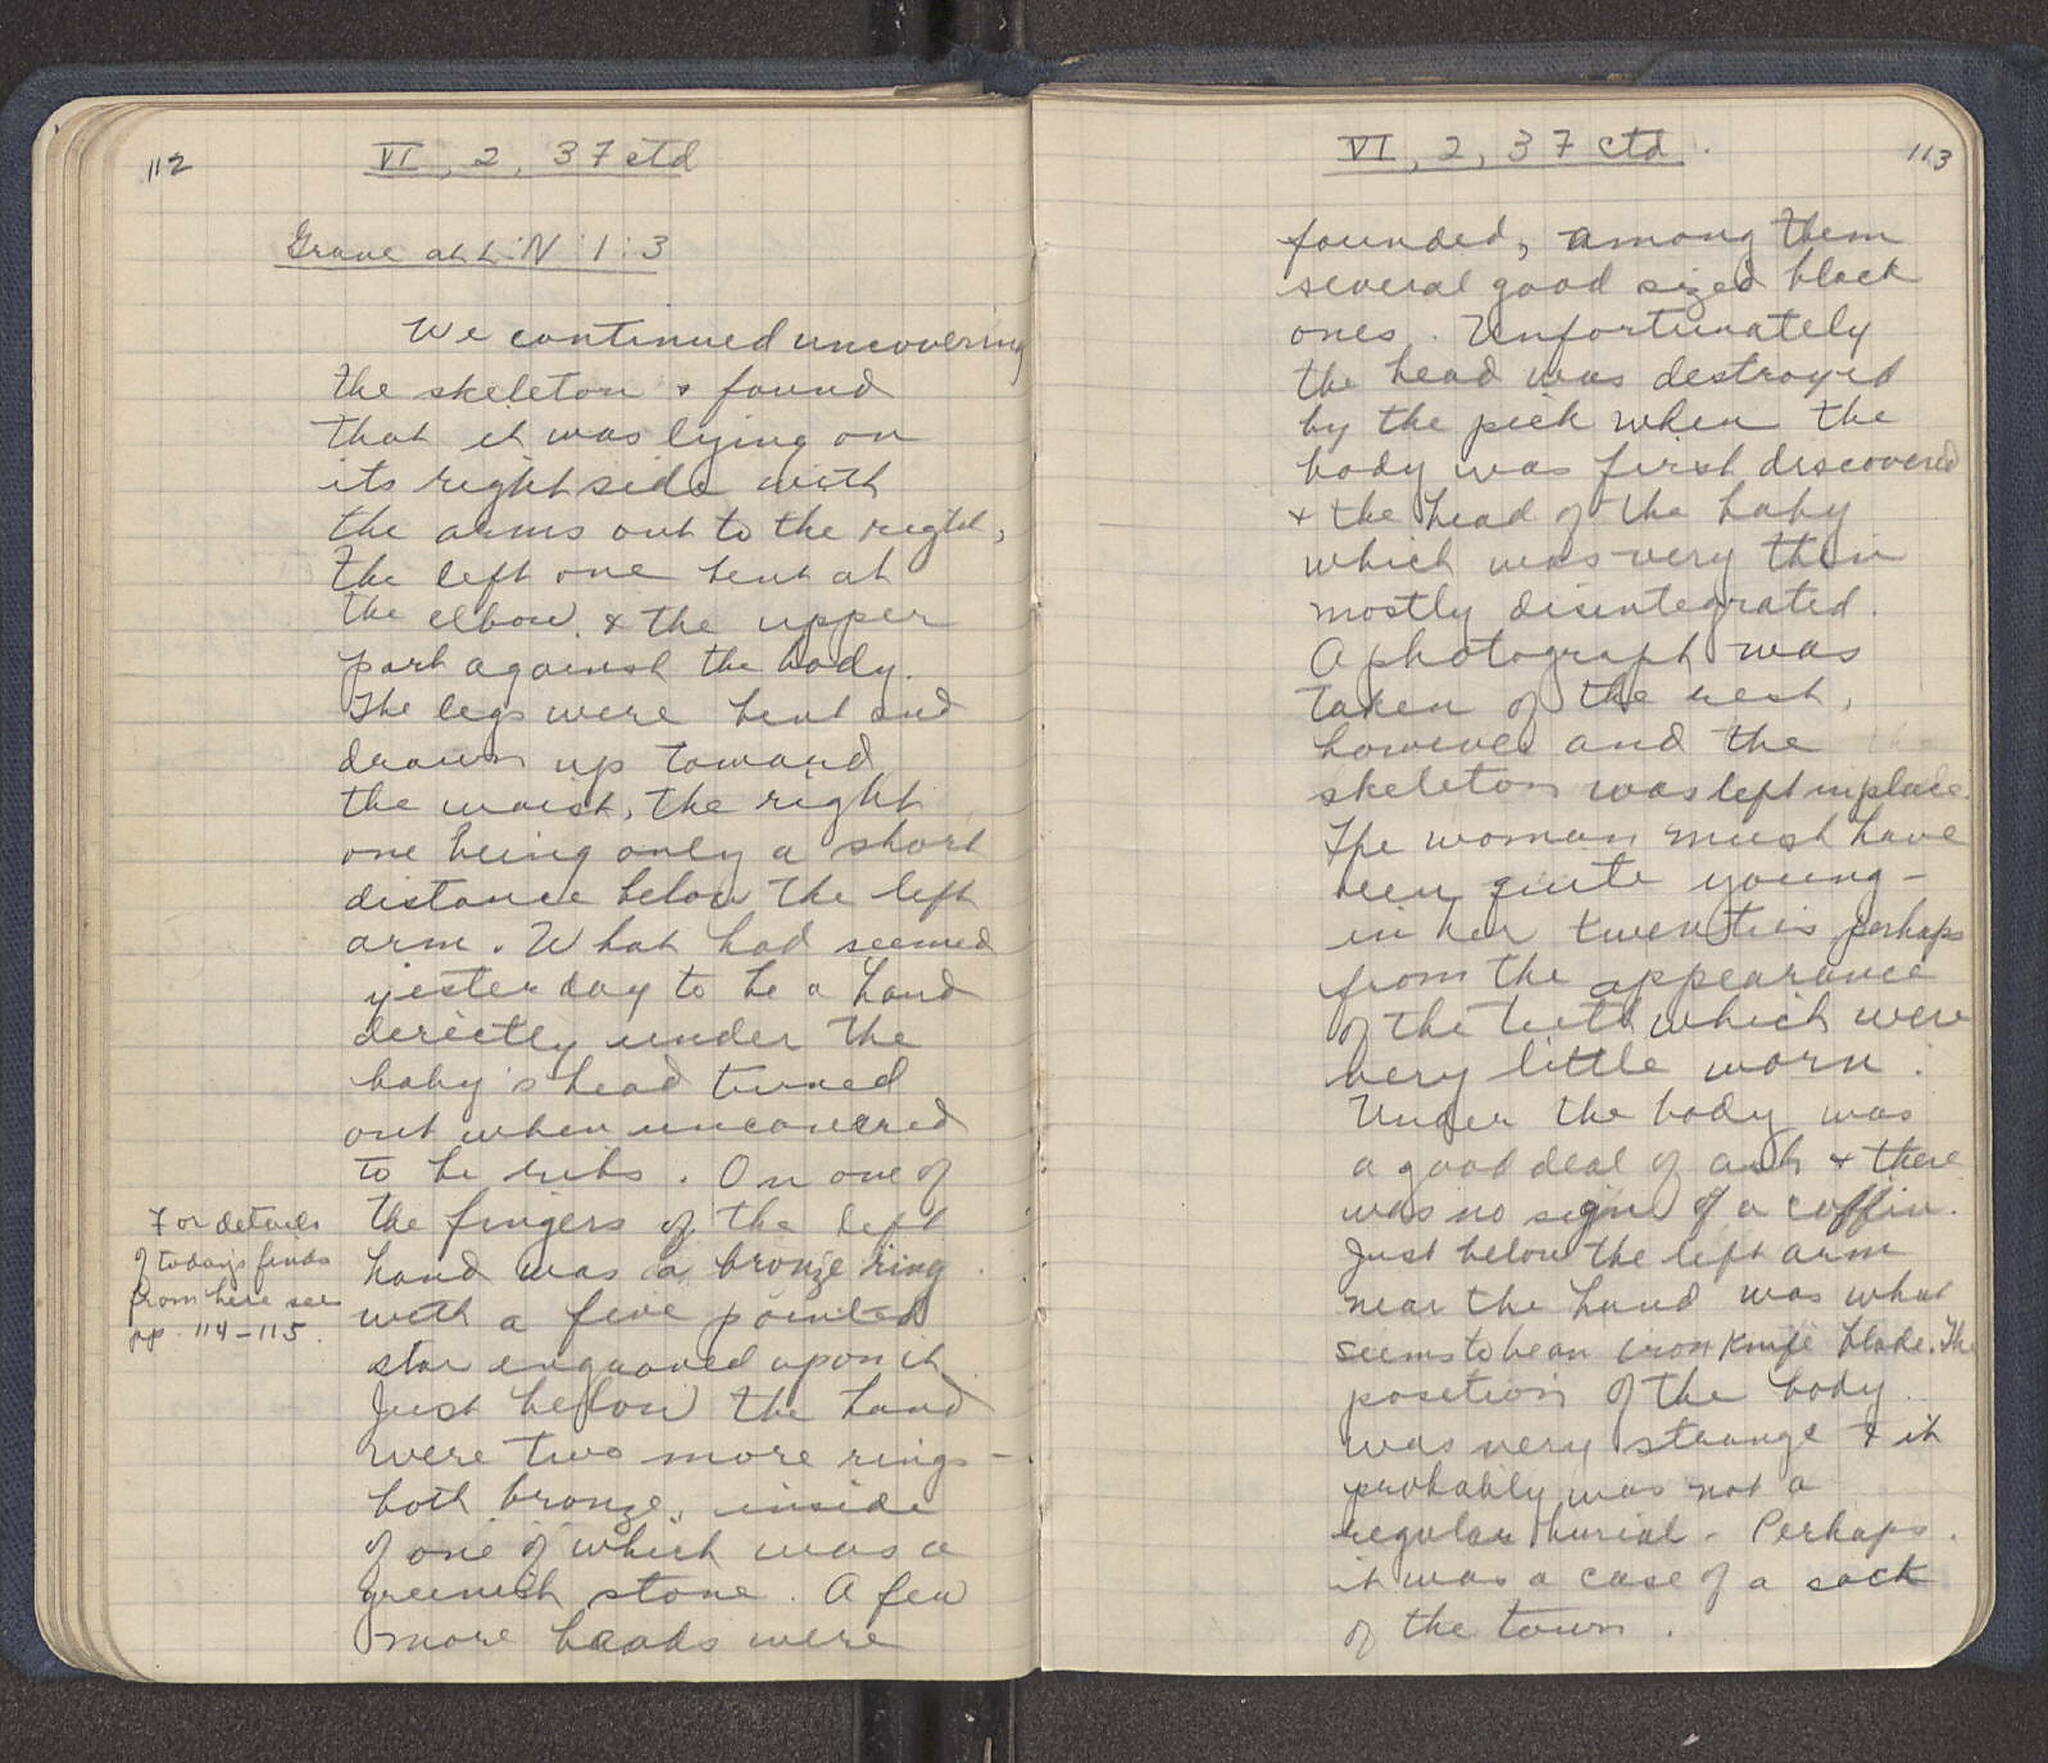 112
VI, 2, 37 ctd
Grave at L:N:1:3
We continued uncovering
the skeleton & found
that it was lying on
its right side with
the arms out to the right,
the left one bent at
the elbow & the upper
part against the body.
The legs were bent and
drawn up toward
the waist, the right
one being only a short
distance below the left
arm. What had seemed
yesterday to be a hand
directly under the
baby's head turned
out when uncovered
to be ribs. On one of
the fingers of the left
hand was a bronze ring
with a five pointed
star engraved upon it.
Just below the hand
were two more rings -
both bronze, inside
of one of which was a
greenish stone. A few
more beads were
For details
of today's finds
from here see
pp. 114-115.
VI, 2, 37 ctd.
113
founded, among them
several good sized black
ones. Unfortunately
the head was destroyed
by the pick when the
body was first discovered
& the head of the baby
which was very thin
mostly disintegrated.
A photograph was
taken of the rest,
however and the
skeleton was left in place.
The woman must have
been quite young -
in her twenties perhaps
from the appearance
of the teeth which were
very little worn.
Under the body was
a good deal of ash & there
was no sign of a coffin.
Just below the left arm
near the hand was what
seems to be an iron knife blade. The
position of the body
was very strange & it
probably was not a
regular burial. Perhaps
it was a case of a sack
of the town.